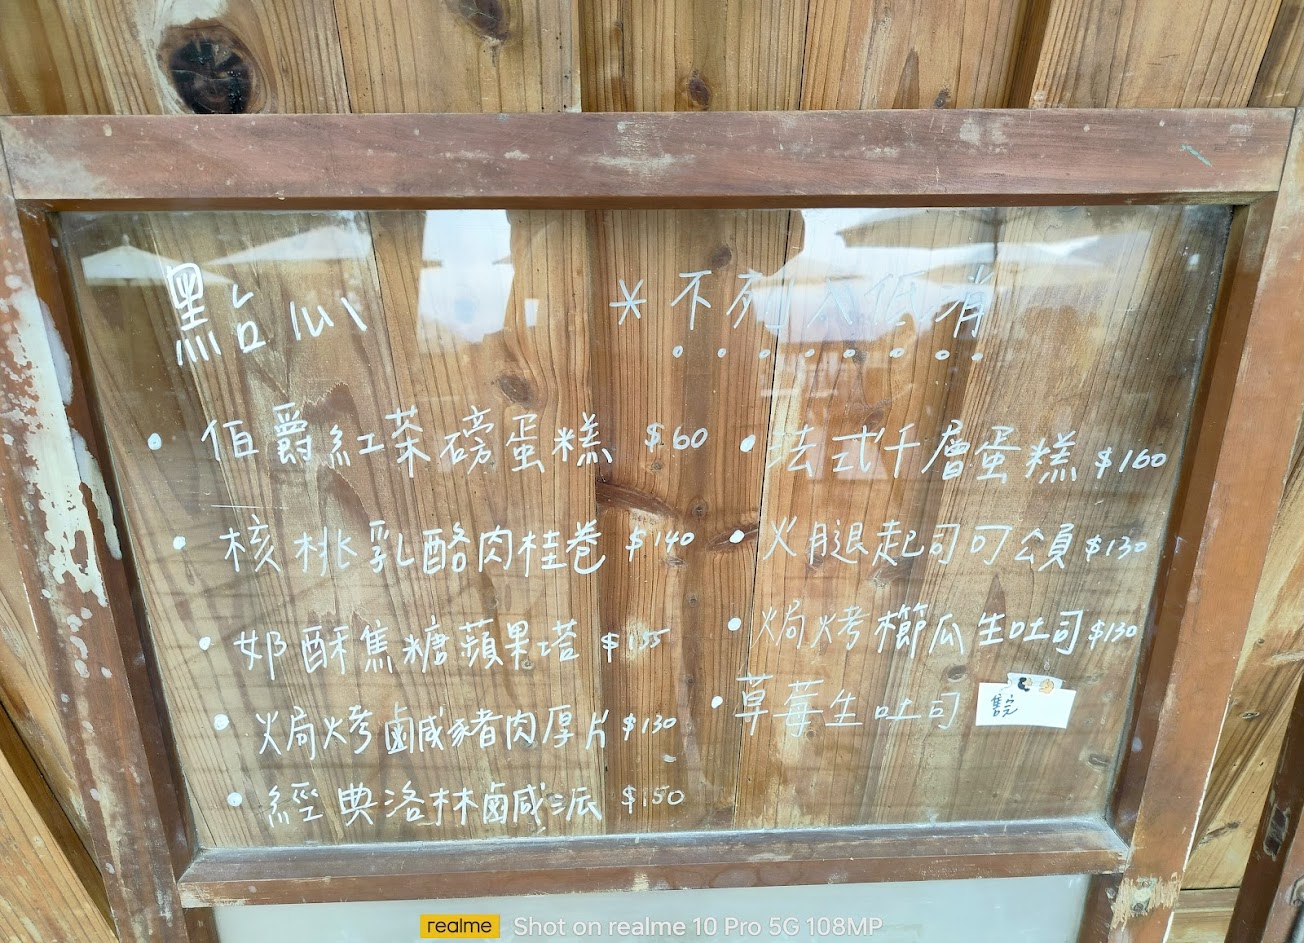 點心
*不列入低消
• 伯爵紅茶磅蛋糕 $60
• 核桃乳酪肉桂卷 $140
• 奶酥焦糖蘋果塔 $155
• 焗烤鹹豬肉厚片 $130
• 經典洛林鹹派 $150
• 法式千層蛋糕 $160
• 火腿起司可頌 $130
• 焗烤櫛瓜生吐司 $130
• 草莓生吐司 售完
realme Shot on realme 10 Pro 5G 108MP